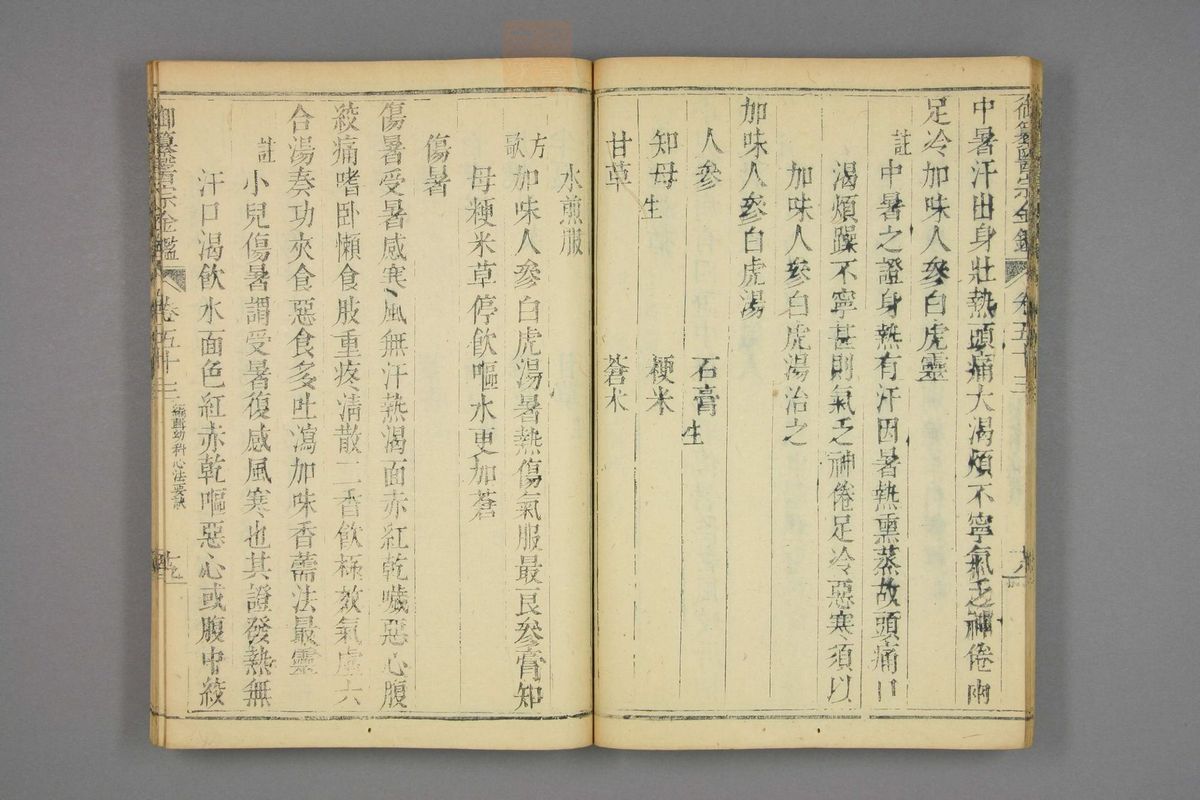 中暑汗出身壯熱頭痛大渴煩不寧氣乏神倦兩
足冷加味人參白虎靈
註中暑之證身熱有汗因暑熱熏蒸故頭痛口
渴煩躁不寧甚則氣乏神倦足冷惡寒須以
加味人參白虎湯治之
加味人參白虎湯
人參 石膏生
知母生 粳米
甘草 蒼朮
水煎服
方歌 加味人參白虎湯暑熱傷氣服最良參膏知
母粳米草停飲嘔水更加蒼
傷暑
傷暑受暑感寒風無汗熱渴面赤紅乾噦惡心腹
絞痛嗜卧懶食肢重疼清散二香飲極效氣虛六
合湯奏功夾食惡食多吐瀉加味香薷法最靈
註小兒傷暑謂受暑復感風寒也其證發熱無
汗口渴飲水面色紅赤乾嘔惡心或腹中絞
御纂醫宗金鑑 卷五十三 編輯幼科心法要訣